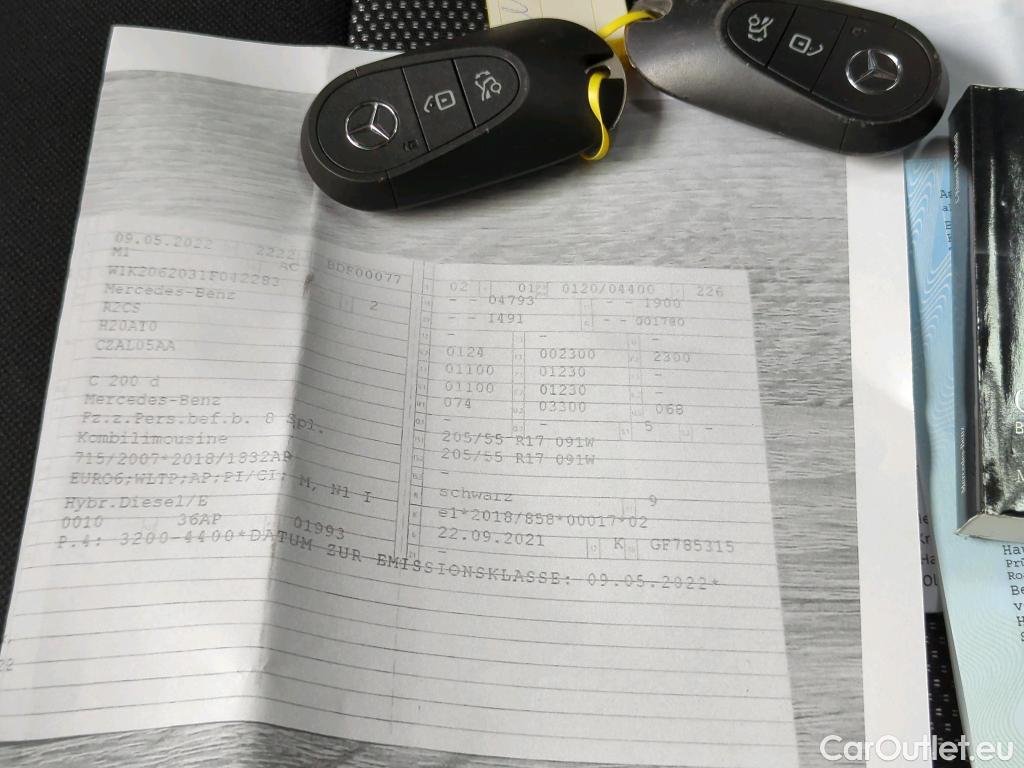 09.05.2022 2222 BDF00077
M1 AC
W1K2062031F042283
Mercedes-Benz 2
R2CS
H20AT0
CZAL05AA
C 200 d
Mercedes-Benz
Fz.z.Pers.bef.b. 8 Spl.
Kombilimousine
715/2007*2018/1832AP
EURO6;WLTP;AP;PI/CI; M, N1 I
Hybr.Diesel/E
0010 36AP 01993
P.4: 3200-4400*DATUM ZUR EMISSIONSKLASSE: 09.05.2022*
02 01 0120/04400 226
- - 04793 - - 1900
- - 1491 - - 001780
- - -
0124 002300 2300
01100 01230 -
01100 01230 -
074 03300 068
- 5 -
205/55 R17 091W
205/55 R17 091W
-
schwarz 9
e1*2018/858*00017*02
22.09.2021 K GF785315
-
Mercedes-Benz
CarOutlet.eu